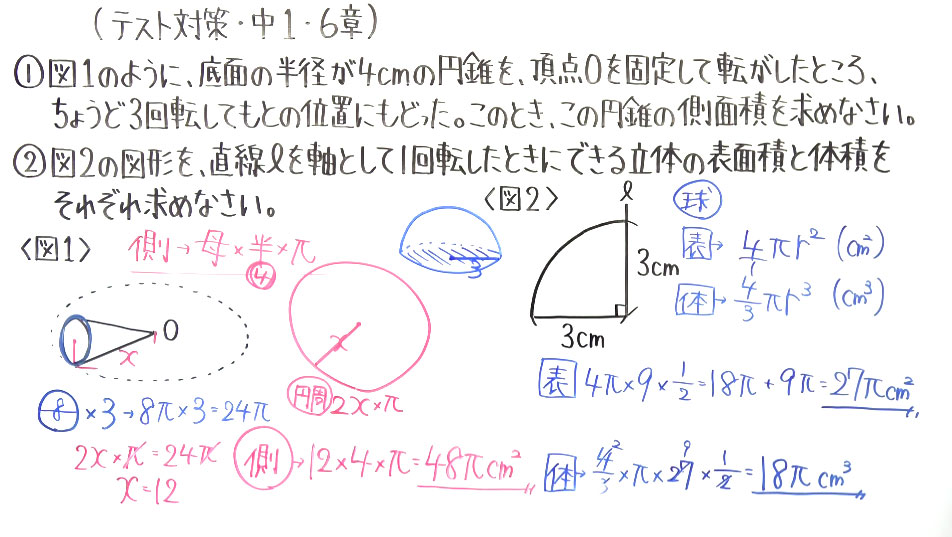 (テスト対策・中1・6章)
①図1のように、底面の半径が4cmの円錐を、頂点Oを固定して転がしたところ、
ちょうど3回転してもとの位置にもどった。このとき、この円錐の側面積を求めなさい。
②図2の図形を、直線ℓを軸として1回転したときにできる立体の表面積と体積を
それぞれ求めなさい。
〈図1〉
側→母×半×π
④
O
x
8×3→8π×3=24π
2x×π=24π
x=12
x
円周 2x×π
側→12×4×π=48πcm²
3
〈図2〉
ℓ
3cm
3cm
球
表→4πr² (cm²)
体→4/3πr³ (cm³)
表 4π×9×1/2=18π+9π=27πcm²
体→4/3×π×27×1/2=18πcm³
2
9